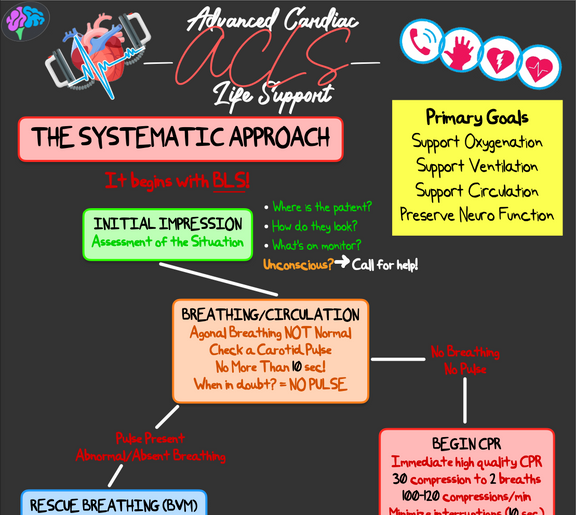 Advanced Cardiac
ACLS
Life Support
Primary Goals
Support Oxygenation
Support Ventilation
Support Circulation
Preserve Neuro Function
THE SYSTEMATIC APPROACH
It begins with BLS!
INITIAL IMPRESSION
Assessment of the Situation
• Where is the patient?
• How do they look?
• What's on monitor?
Unconscious?→Call for help!
BREATHING/CIRCULATION
Agonal Breathing NOT Normal
Check a Carotid Pulse
No More Than 10 sec!
When in doubt? = NO PULSE
No Breathing
No Pulse
Pulse Present
Abnormal/Absent Breathing
BEGIN CPR
Immediate high quality CPR
30 compression to 2 breaths
100-120 compressions/min
Minimize interruptions (10 sec)
RESCUE BREATHING (BVM)